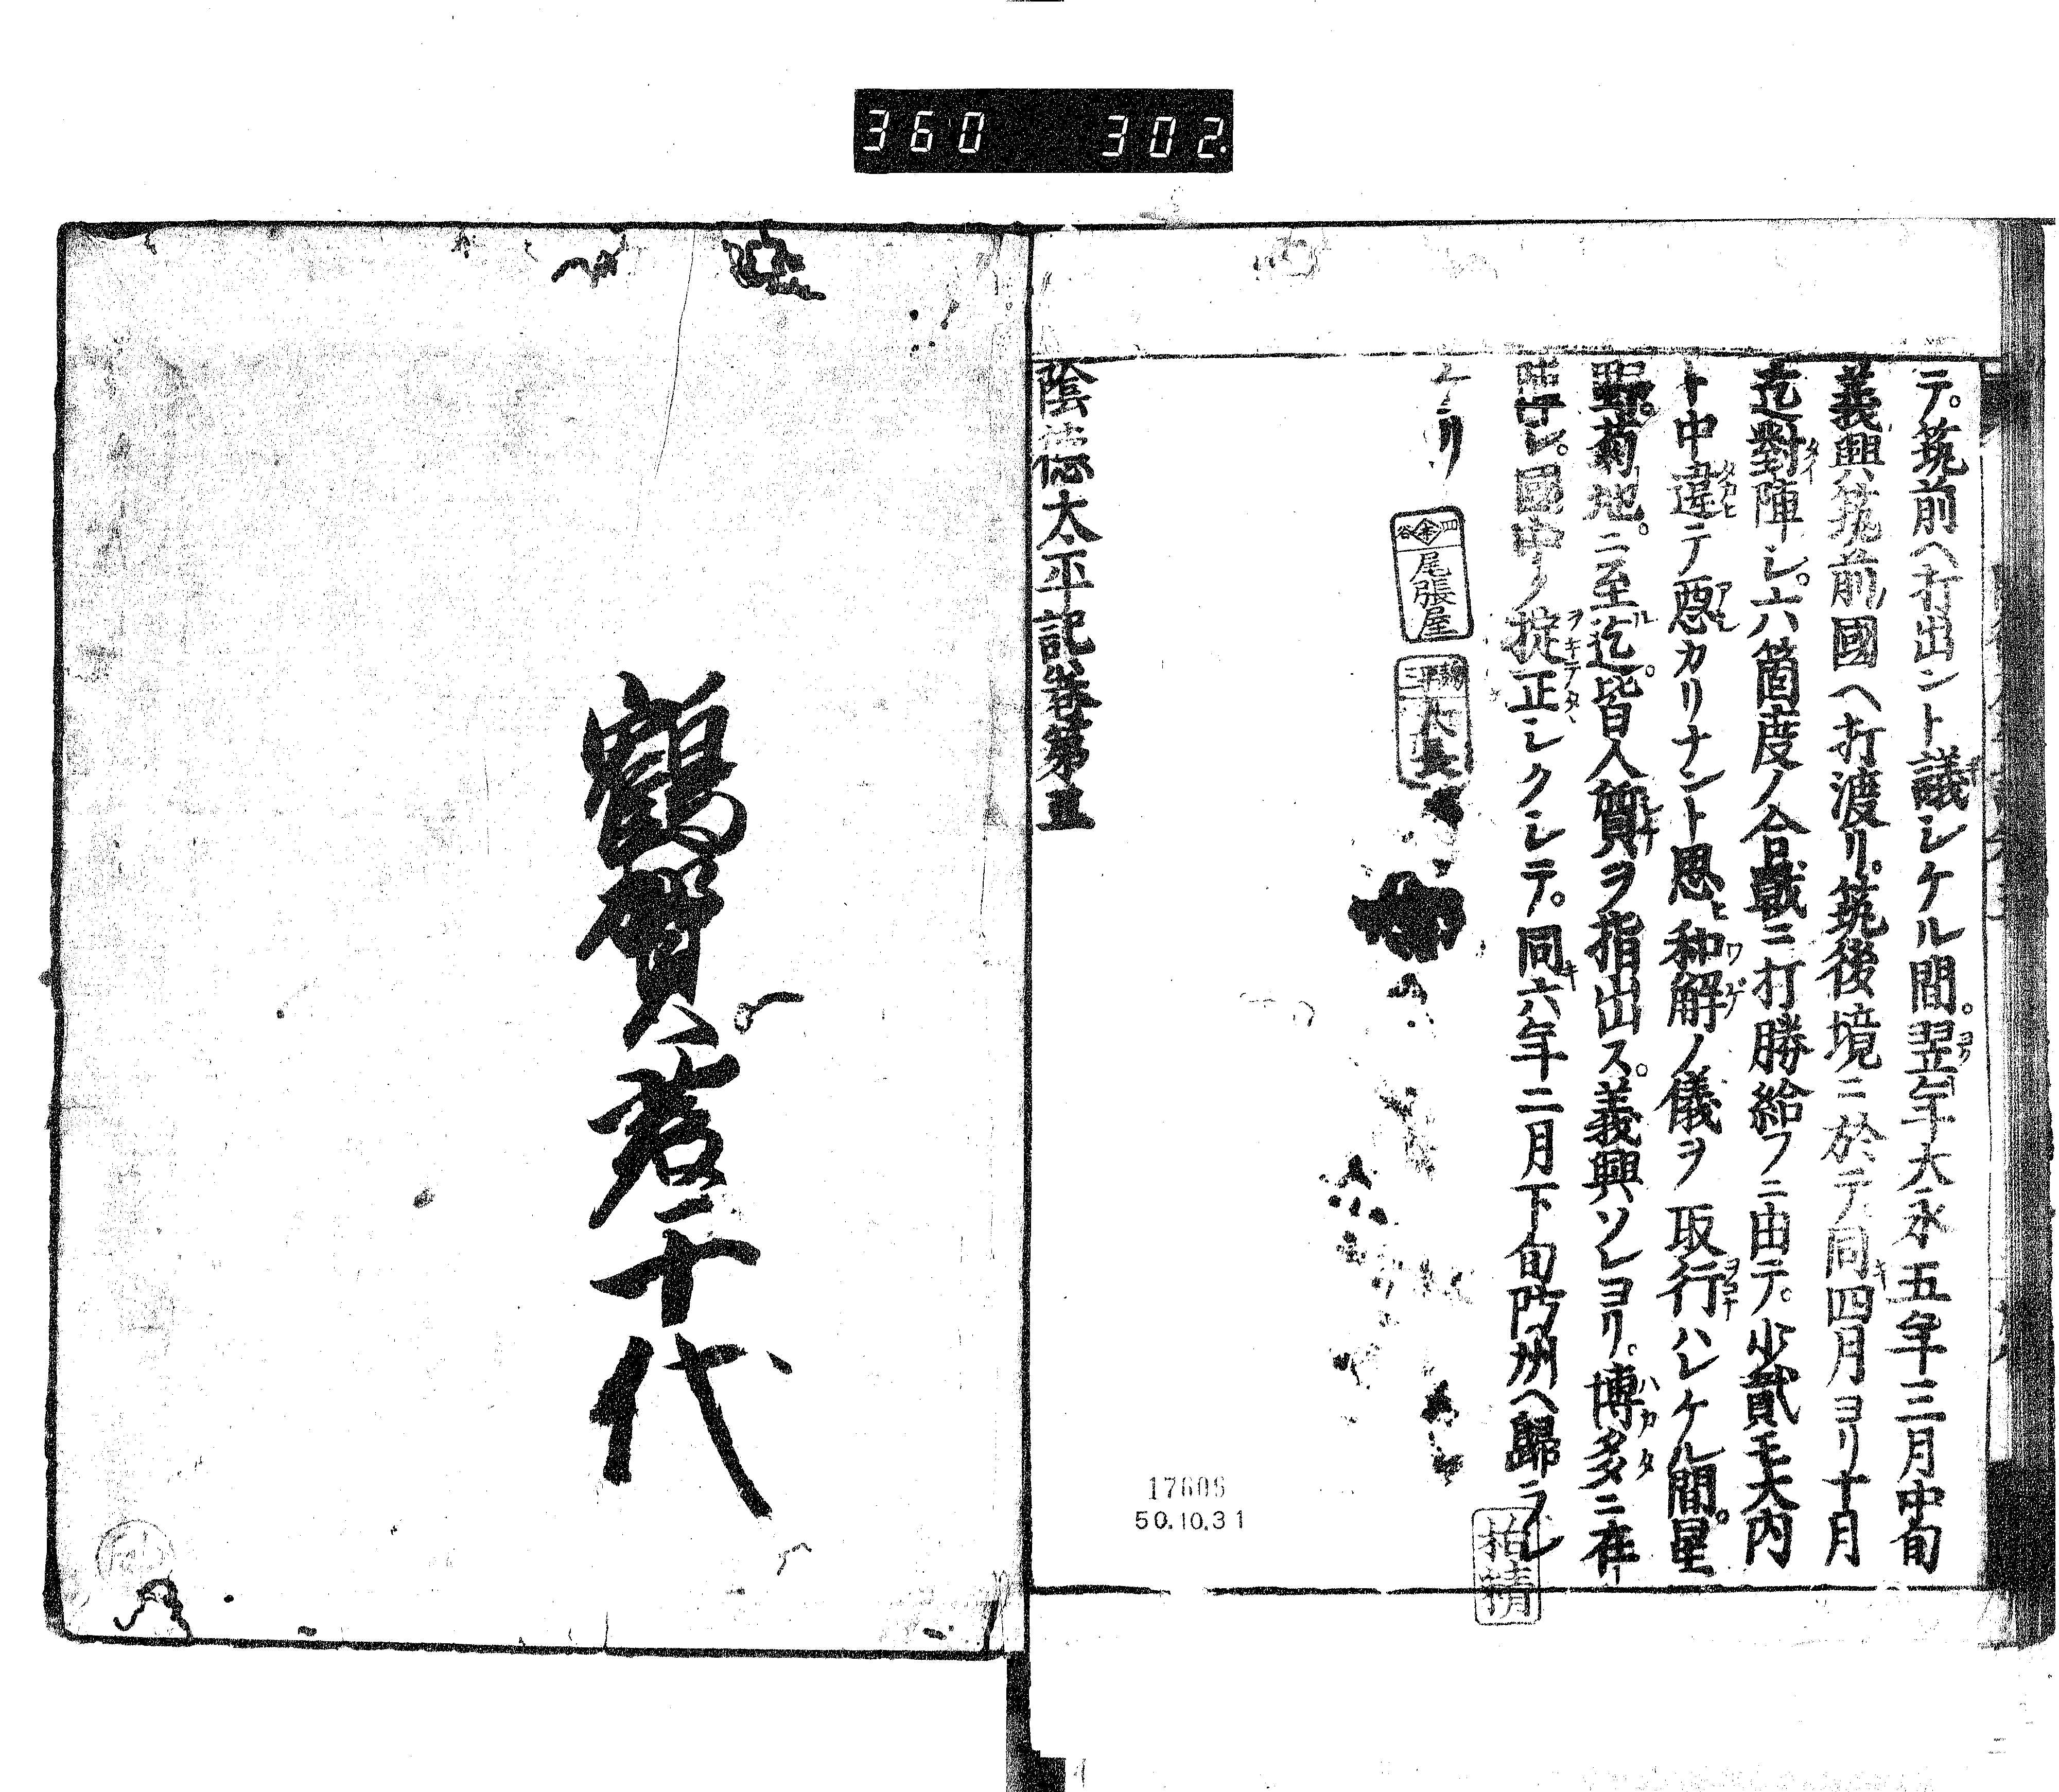 360 302
テ。筑前ヘ打出ント議シケル間。翌年大永五年三月中旬
義興筑前國ヘ打渡リ。筑後境ニ於テ同四月ヨリ十月
迄對陣シ。六箇度ノ合戰ニ打勝給フニ由テ。少貳モ大内
ト中違テ悪カリナント思ヒ和解ノ儀ヲ取行ハレケル間。星
野。菊地。ニ至ル迄。皆人質ヲ指出ス。義興ソレヨリ。博多ニ在
陣シ。國中ノ掟正シクシテ。同六年二月下旬防州ヘ歸ラレ
ケリ
四 谷
尾張屋
陰徳太平記卷第五
17606
50.10.31
鶴賀
十代